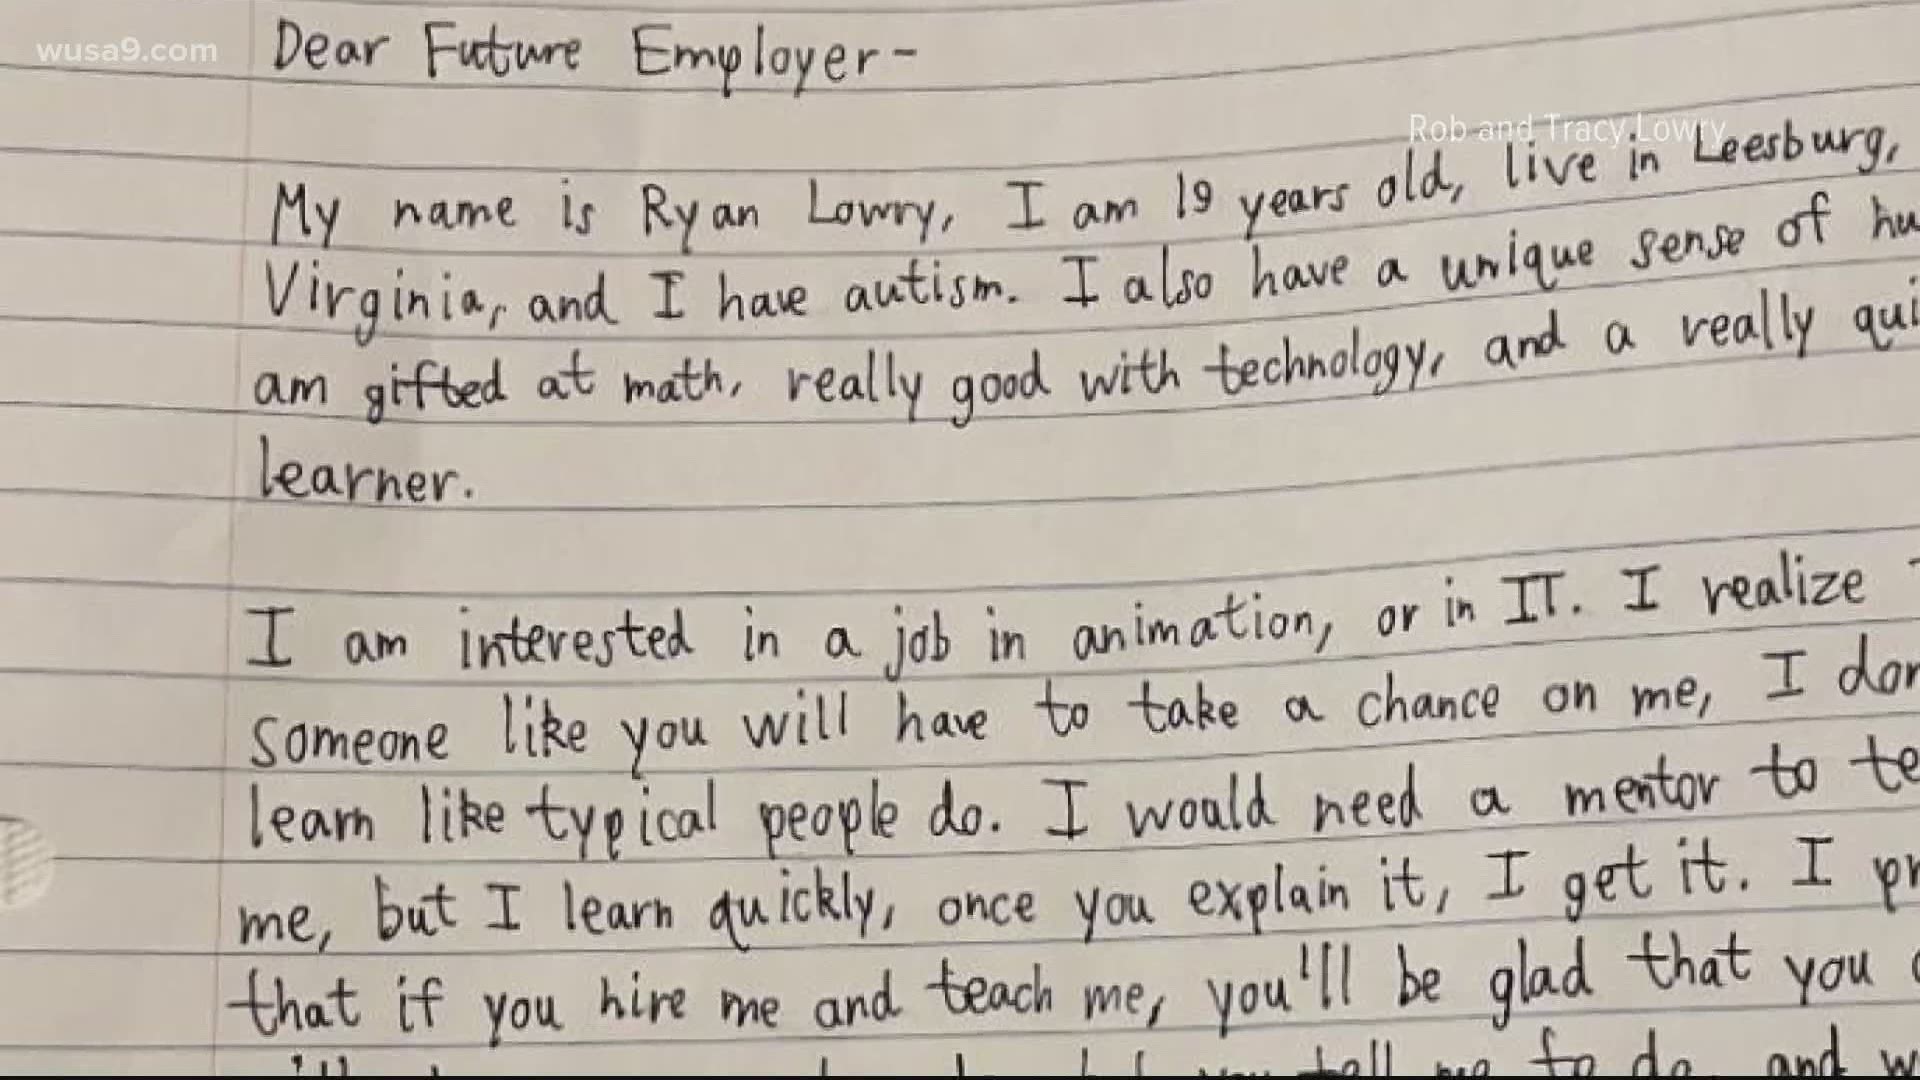 wusa9.com
Dear Future Employer-
Rob and Tracy Lowry
My name is Ryan Lowry, I am 19 years old, live in Leesburg,
Virginia, and I have autism. I also have a unique sense of hu
am gifted at math, really good with technology, and a really qui
learner.
I am interested in a job in animation, or in IT. I realize
someone like you will have to take a chance on me, I don
learn like typical people do. I would need a mentor to te
me, but I learn quickly, once you explain it, I get it. I pr
that if you hire me and teach me, you'll be glad that you
tell me to do, and w